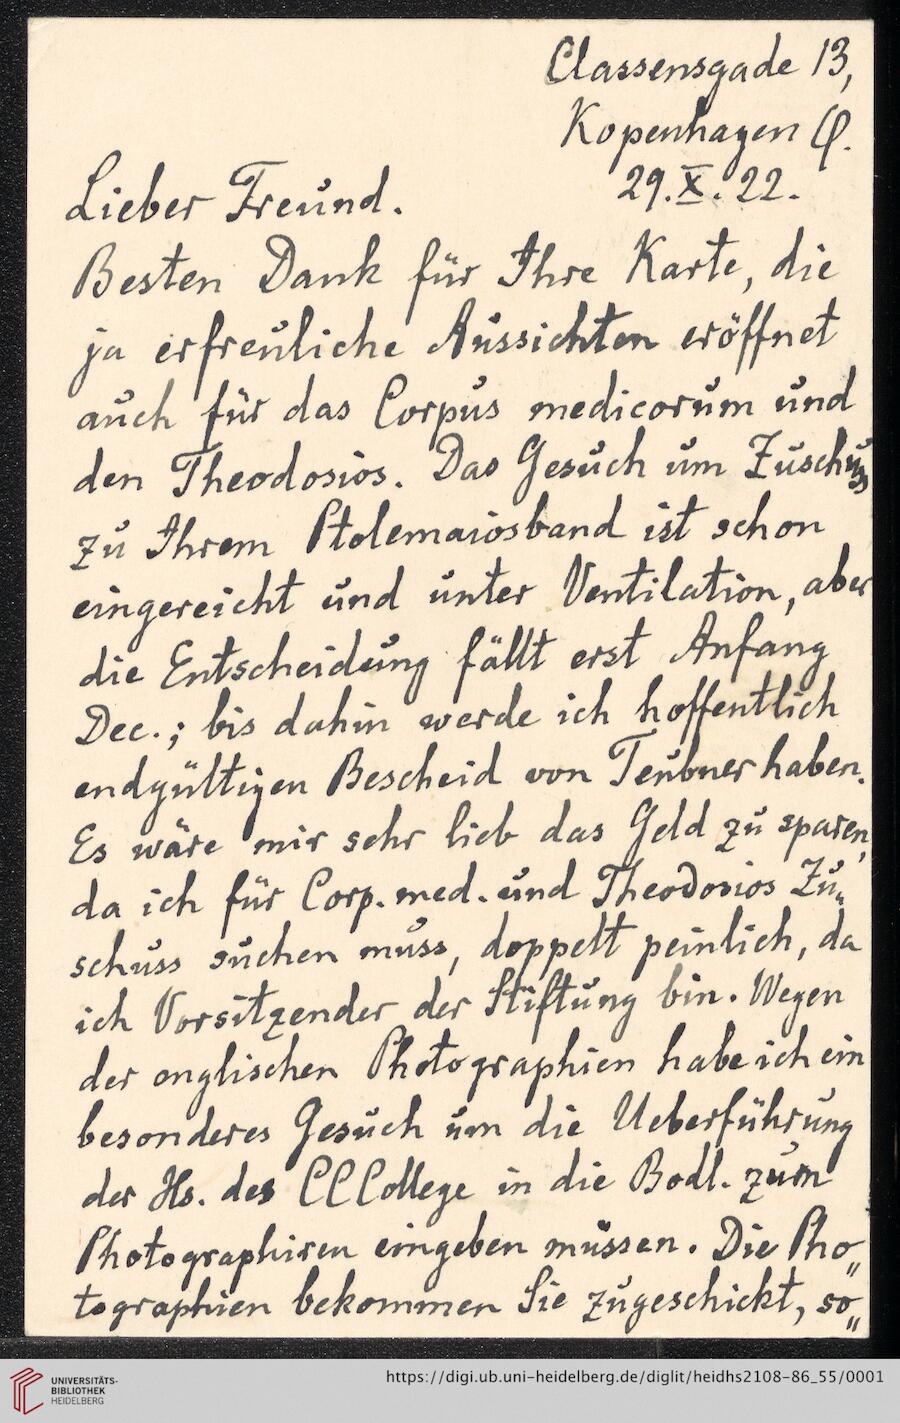 Classensgade 13,
Kopenhagen Ø.
29.X.22.
Lieber Freund.
Besten Dank für Ihre Karte, die
ja erfreuliche Aussichten eröffnet
auch für das Corpus medicorum und
den Theodosios. Das Gesuch um Zuschuss
zu Ihrem Ptolemaiosband ist schon
eingereicht und unter Ventilation, aber
die Entscheidung fällt erst Anfang
Dec.; bis dahin werde ich hoffentlich
endgültigen Bescheid von Teubner haben.
Es wäre mir sehr lieb das Geld zu sparen,
da ich für Corp. med. und Theodosios Zu„
schuss suchen muss, doppelt peinlich, da
ich Vorsitzender der Stiftung bin. Wegen
der englischen Photographien habe ich ein
besonderes Gesuch um die Ueberführung
der Hs. des CCCollege in die Bodl. zum
Photographiren eingeben müssen. Die Pho„
tographien bekommen Sie zugeschickt, so„
UNIVERSITÄTS-
BIBLIOTHEK
HEIDELBERG
https://digi.ub.uni-heidelberg.de/diglit/heidhs2108-86_55/0001